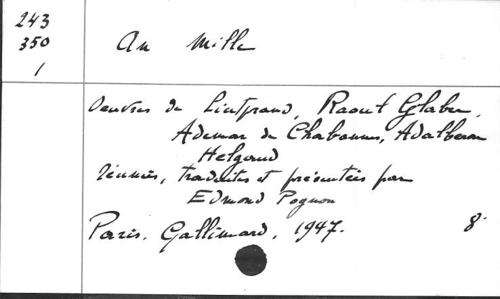 243
350
1
An Mille
Oeuvres de Liutprand, Raoul Glaber,
Ademar de Chabannes, Adalberon
Helgaud
réunies, traduites et présentées par
Edmond Pognon
Paris. Gallimard, 1947. 8°